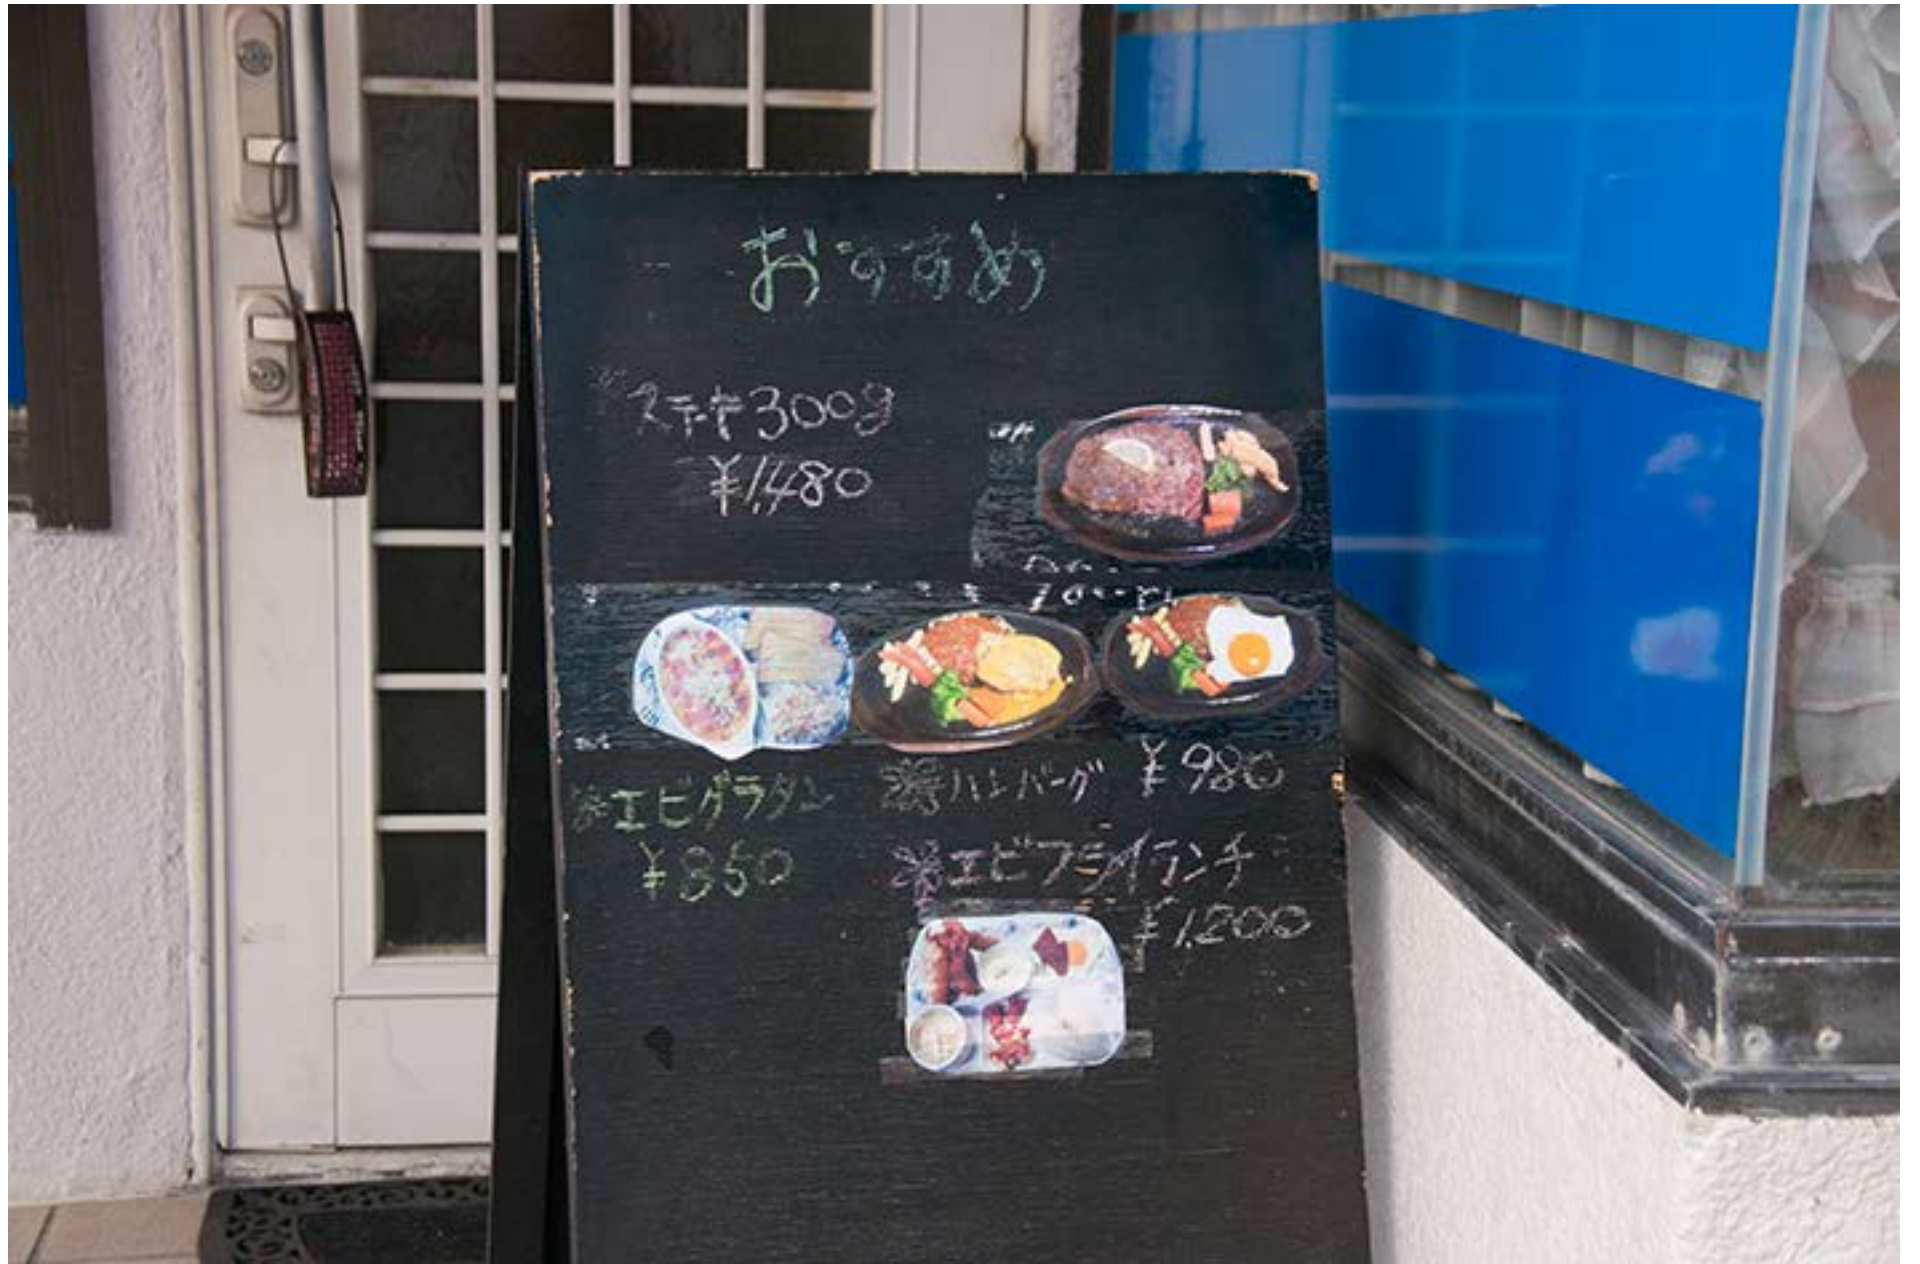 おすすめ
ステーキ300g
¥1,480
※エビグラタン
¥850
※ハンバーグ ¥980
※エビフライランチ
¥1,200